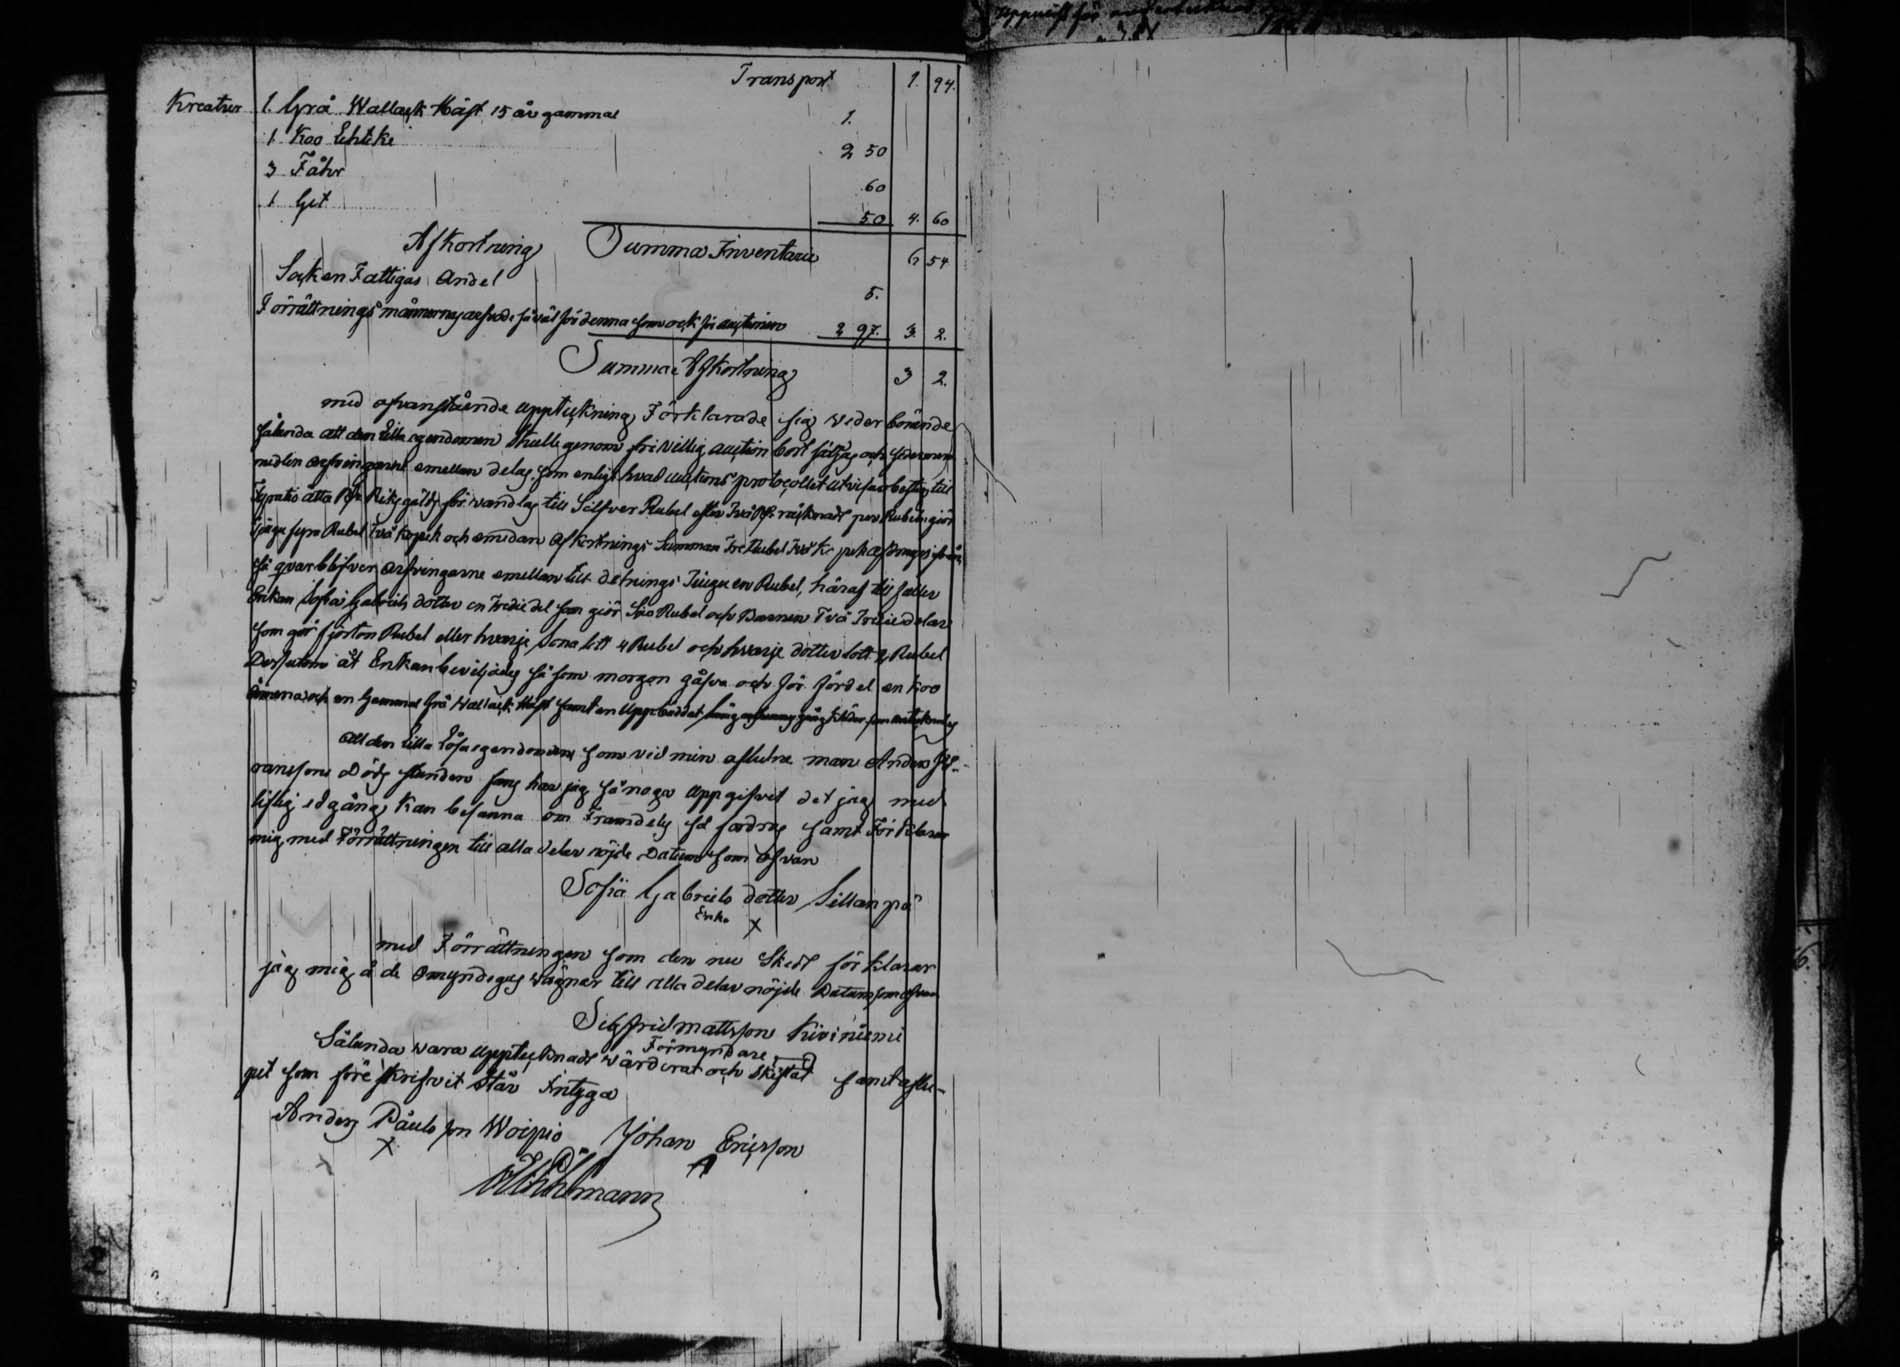 Transport 1. 94.
Kreatur 1. Grå Wallack Häst 15 år gammal 1.
1 Koo Lehtike 2 50
3 Fåhr 60
1 Get 50 4. 60
Summa Inventarie 6 54
Afkortning
Socken Fattigas Andel 5.
Förrättnings männernas arfvode så väl för denna som ock för auctionen 2 97. 3. 2.
Summa Afkortning 3 2.
med ofvanstående uppteckning Förklarade sig wederbörande
sålunda att den Lilla egendomen skulle genom frivillig auction bort säljas och sedermera
medlen arfvingarne emellan delas som enligt hvad auctions protocollet utvisar besteg till
åtta Riksgälds för vandlas till Silfver Rubel efter Två räknadt per Rubel giör
Tjugu fyra Rubel Två kopek och emedan Afkortnings Summan Tre Rubel Två afdrages
så qvarblifver arfvingarne emellan till delnings Tjugu en Rubel, häraf till faller
Enkan Sofia Gabriels dotter en Tredie del som giör Sju Rubel och Barnen Två Tredie delar
som gör fjorton Rubel eller hvarje Sona lott 4 Rubel och hvarje dotter lott 2 Rubel
Dessutom åt Enkan beviljades så som morgon gåfva och för fördel en koo
och en Gammal Grå Wallack Häst samt en Uppbäddad
All den Lilla Lösa egendomen som vid min aflidne man Anders
Döds funden fans har jag så noga uppgifvit det jag med
liflig edgång kan besanna om Framdeles så fodras samt Förklarar
mig med Förrättningen till alla delar nöjde Datum som ofvan
Sofia Gabriels dotter Sillanpä
Enka X
med Förrättningen som den nu Skedt förklarar
jag mig å de omyndigas wägnar till alla delar nöjde Datum som ofvan
Sigfrid mattsson Kiviniemi
Förmyndare
Sålunda vara upptecknadt wärderat och skiftat samt afslu-
pet somföreskrifvit står Intyga
Anders Påuls son Woipio Johan Ericsson
X